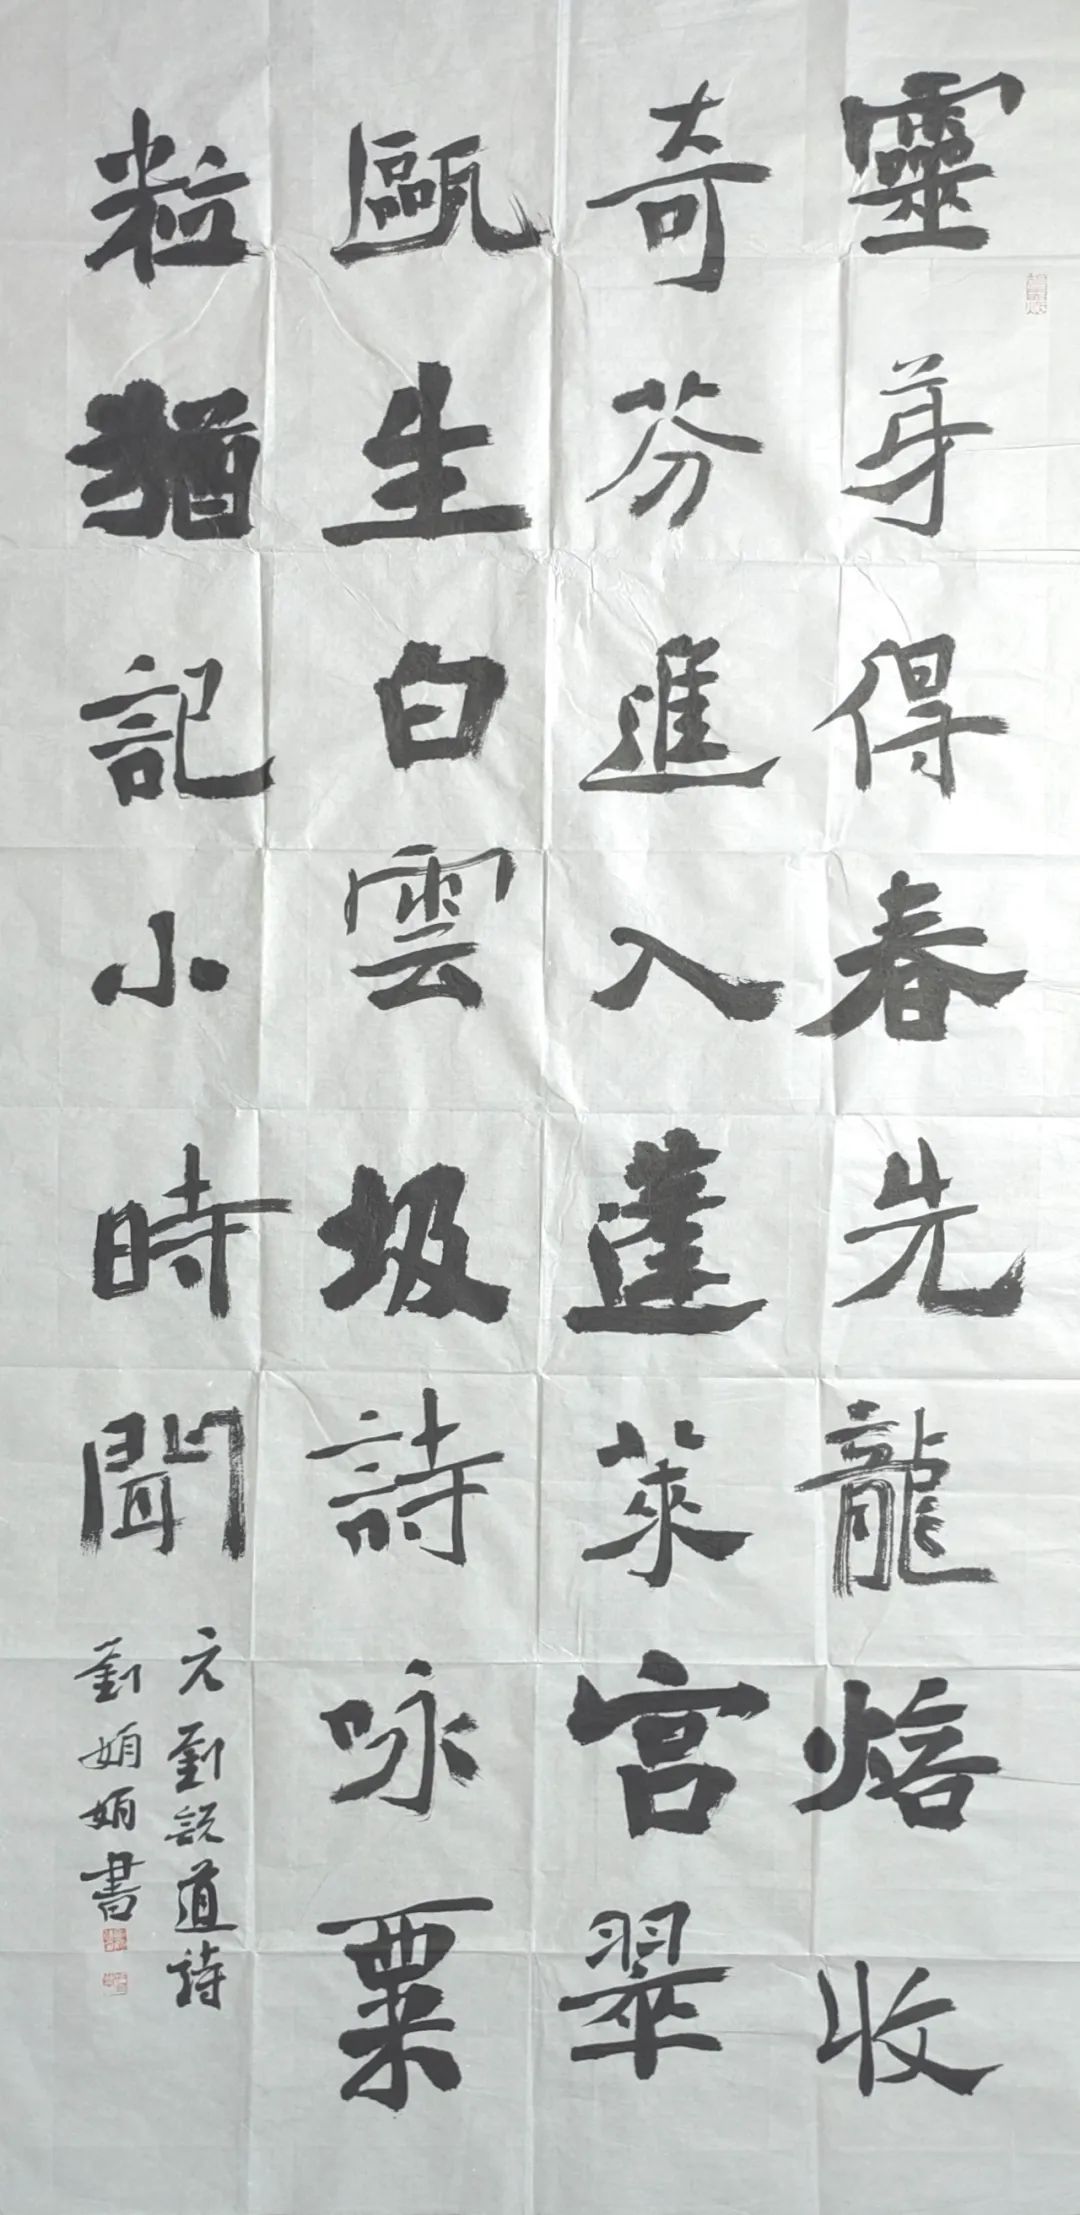 靈芽得春先龍焙收
奇芬進入蓬萊宮翠
甌生白雲坡詩咏粟
粒猶記小時聞
元劉說道詩
劉娟娟書